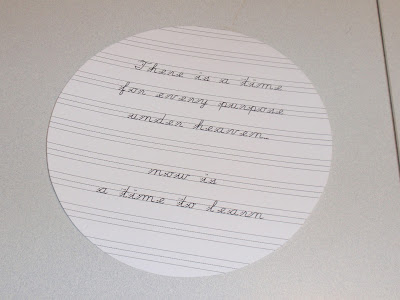 There is a time
for every purpose
under heaven.
now is
a time to learn